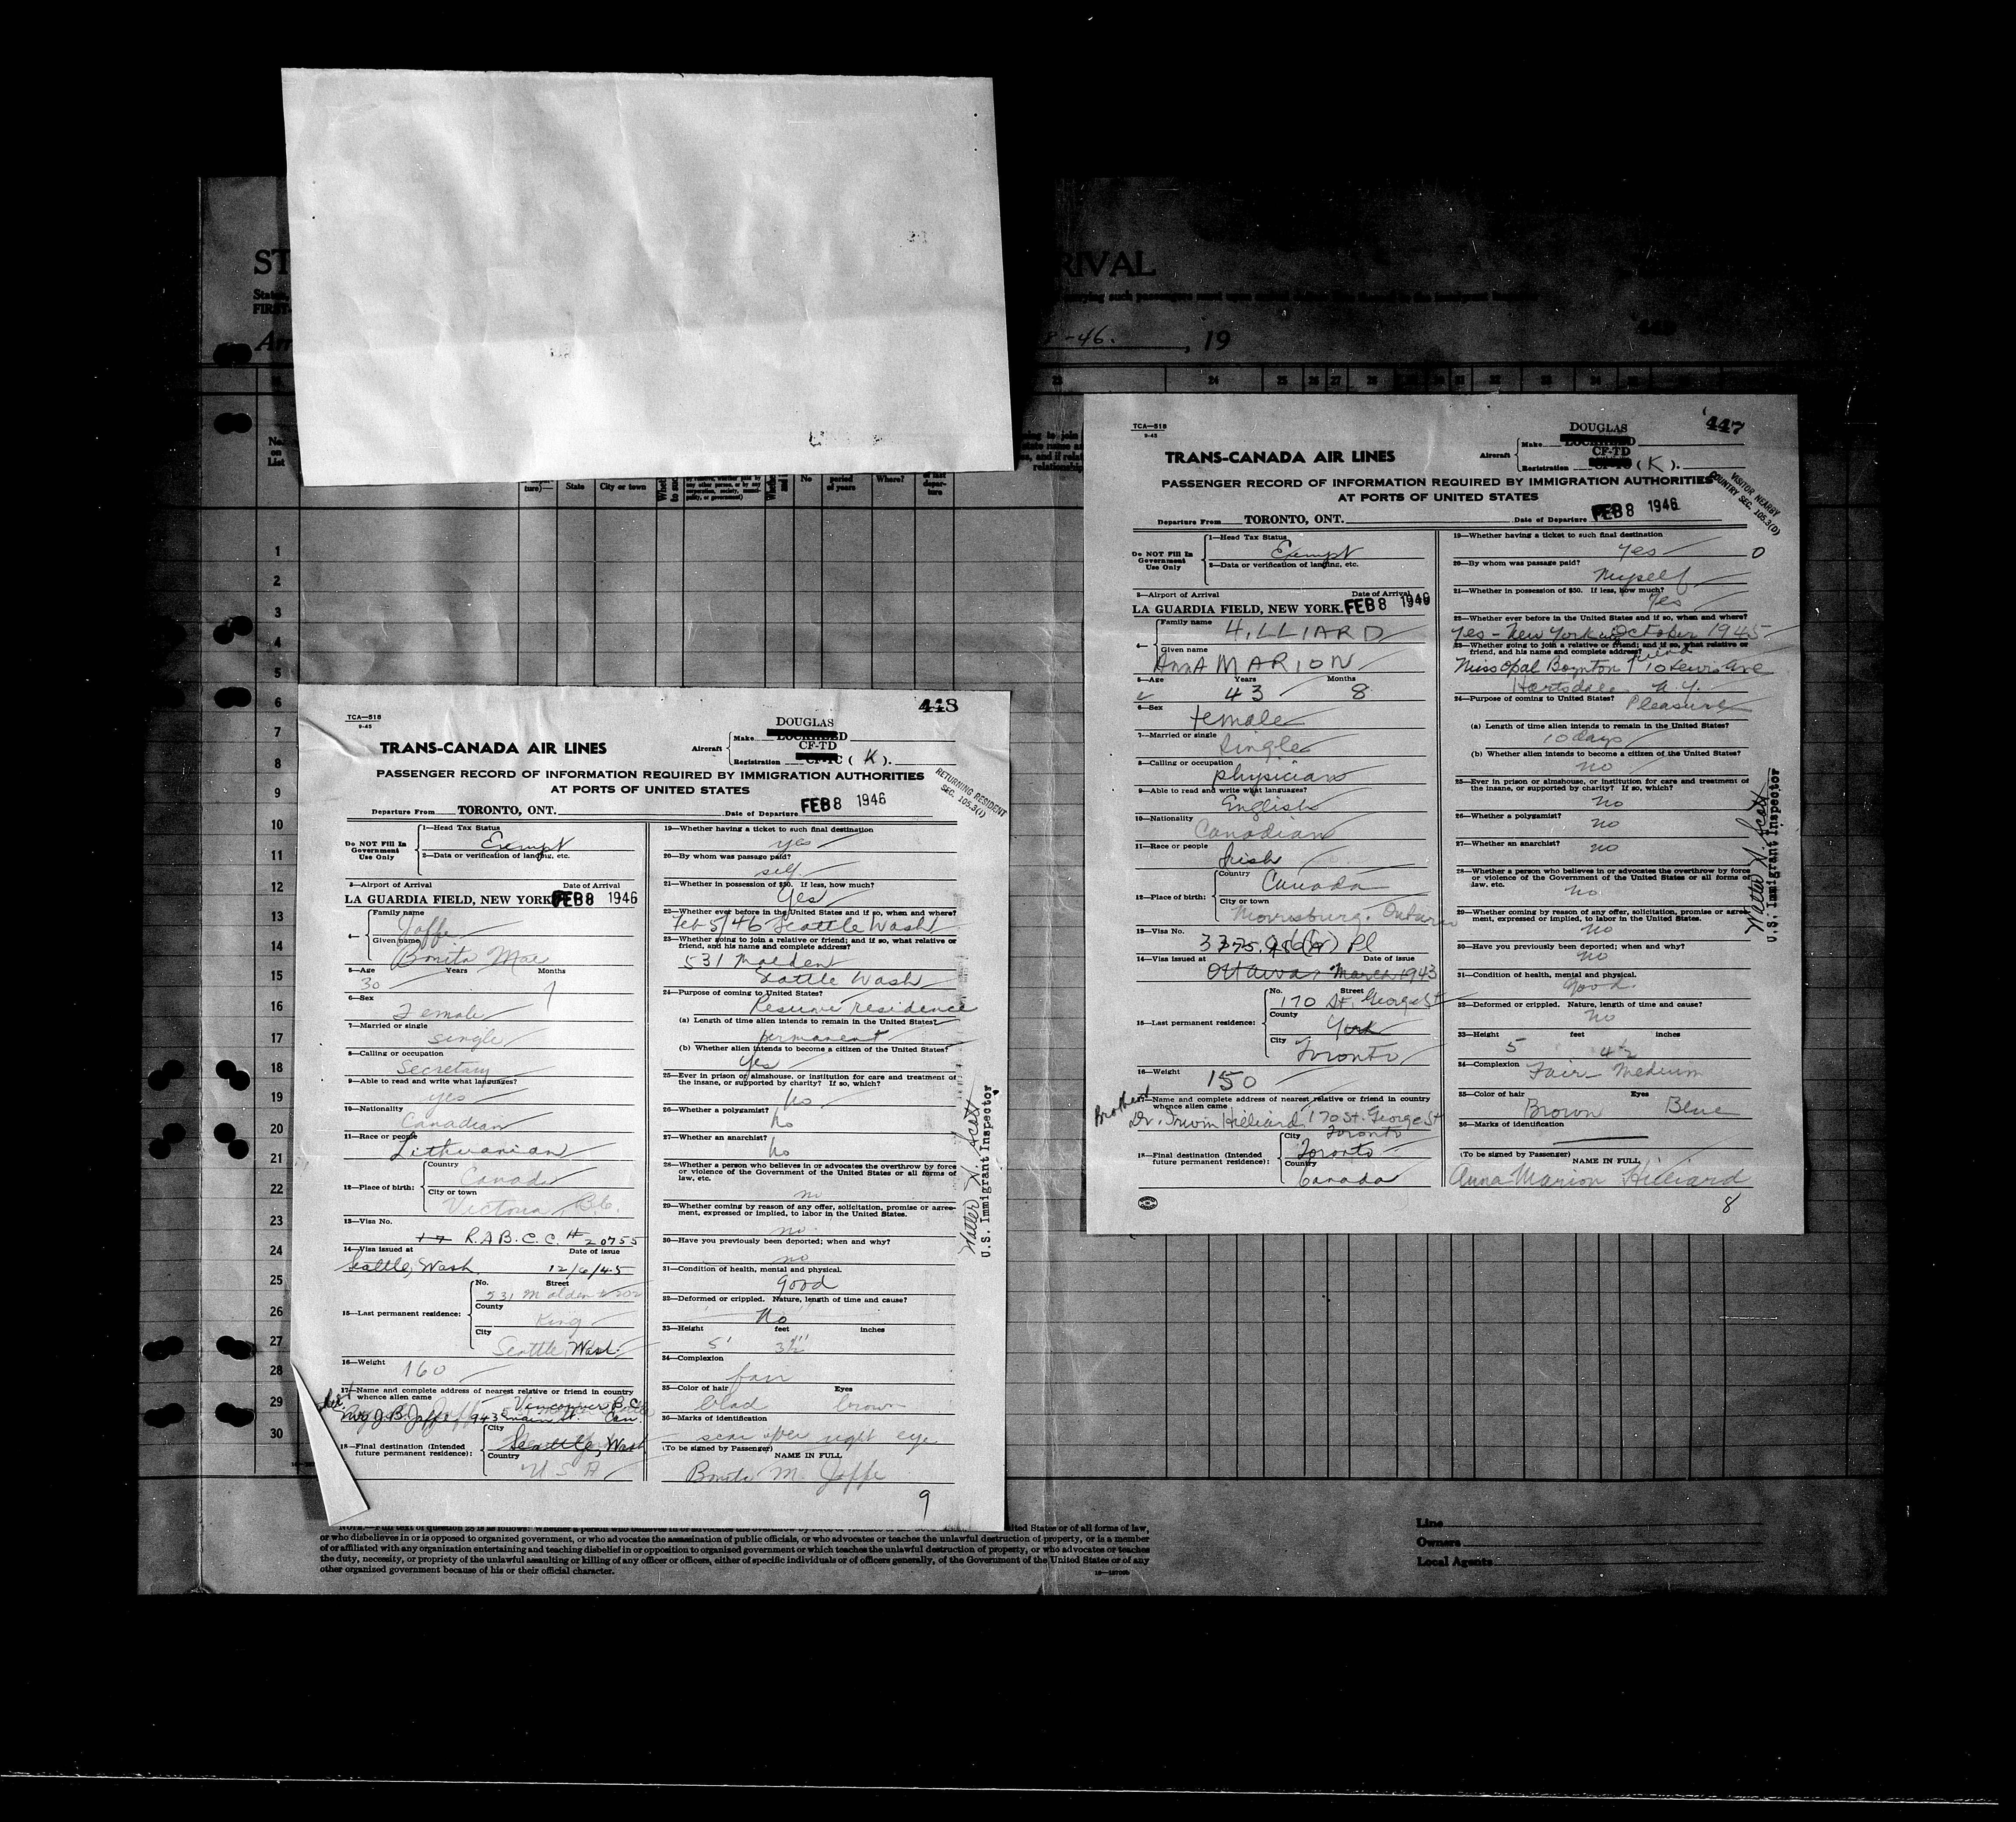 ST
RIVAL
FIRST
8-46. , 19
23 24 25 26 27 28
No. on List
State City or town
No period of years Where?
1
2
3
4
5
6
7
8
9
10
11
12
13
14
15
16
17
18
19
20
21
22
23
24
25
26
27
28
29
30
448
TCA—518
9-43
DOUGLAS
TRANS-CANADA AIR LINES
Aircraft Make LOCKHEED
CF-TD
Registration CF-TC (K).
PASSENGER RECORD OF INFORMATION REQUIRED BY IMMIGRATION AUTHORITIES
AT PORTS OF UNITED STATES
RETURNING RESIDENT
SEC. 105.3(1)
Departure From TORONTO, ONT. Date of Departure FEB 8 1946
Do NOT Fill In Government Use Only
1—Head Tax Status
Exempt
2—Data or verification of landing, etc.
3—Airport of Arrival Date of Arrival
LA GUARDIA FIELD, NEW YORK FEB 8 1946
4— Family name
Jaffe
Given name
Bonita Mae
5—Age Years Months
30 1
6—Sex
Female
7—Married or single
single
8—Calling or occupation
Secretary
9—Able to read and write what languages?
yes
10—Nationality
Canadian
11—Race or people
Lithuanian
12—Place of birth: Country
Canada
City or town
Victoria B.C.
13—Visa No.
R.A.B.C.C. # 20755
14—Visa issued at Date of issue
Seattle, Wash. 12/6/45
15—Last permanent residence: No. Street
531 Malden # 202
County
King
City
Seattle, Wash.
16—Weight
160
17—Name and complete address of nearest relative or friend in country
whence alien came
J B Jaffe 943 main St. Vancouver B.C. Can.
18—Final destination (Intended future permanent residence): City
Seattle, Wash
Country
U S A
19—Whether having a ticket to such final destination
yes
20—By whom was passage paid?
self
21—Whether in possession of $50. If less, how much?
Yes
22—Whether ever before in the United States and if so, when and where?
Feb 5/46 Seattle Wash
23—Whether going to join a relative or friend; and if so, what relative or
friend, and his name and complete address?
531 Malden
Seattle Wash
24—Purpose of coming to United States?
Resume residence
(a) Length of time alien intends to remain in the United States?
permanent
(b) Whether alien intends to become a citizen of the United States?
yes
25—Ever in prison or almshouse, or institution for care and treatment of
the insane, or supported by charity? If so, which?
no
26—Whether a polygamist?
no
27—Whether an anarchist?
no
28—Whether a person who believes in or advocates the overthrow by force
or violence of the Government of the United States or all forms of
law, etc.
no
29—Whether coming by reason of any offer, solicitation, promise or agree-
ment, expressed or implied, to labor in the United States.
no.
30—Have you previously been deported; when and why?
no
31—Condition of health, mental and physical.
good
32—Deformed or crippled. Nature, length of time and cause?
No
33—Height feet inches
5' 3½"
34—Complexion
fair
35—Color of hair Eyes
blad brown
36—Marks of identification
scar over right eye
(To be signed by Passenger) NAME IN FULL
Bonita M. Jaffe
9
Walter N. Scott
U.S. Immigrant Inspector
447
TCA—518
9-43
DOUGLAS
TRANS-CANADA AIR LINES
Aircraft Make LOCKHEED
CF-TD
Registration CF-TC (K).
PASSENGER RECORD OF INFORMATION REQUIRED BY IMMIGRATION AUTHORITIES
AT PORTS OF UNITED STATES
VISITOR NEARBY
COUNTRY SEC. 105.3(D)
Departure From TORONTO, ONT. Date of Departure FEB 8 1946
Do NOT Fill In Government Use Only
1—Head Tax Status
Exempt
2—Data or verification of landing, etc.
3—Airport of Arrival Date of Arrival
LA GUARDIA FIELD, NEW YORK. FEB 8 1946
4— Family name
HILLIARD
Given name
AnnA MARION
5—Age Years Months
43 8
6—Sex
female
7—Married or single
Single
8—Calling or occupation
physician
9—Able to read and write what languages?
English
10—Nationality
Canadian
11—Race or people
Irish
12—Place of birth: Country
Canada
City or town
Morrisburg. Ontario
13—Visa No.
14—Visa issued at Date of issue
Ottawa March 1943
15—Last permanent residence: No. Street
170 St. George St
County
York
City
Toronto
16—Weight
150
17—Name and complete address of nearest relative or friend in country
whence alien came
Brother
Dr. Irwin Hilliard, 170 St. George St
Toronto
18—Final destination (Intended future permanent residence): City
Toronto
Country
Canada
19—Whether having a ticket to such final destination
yes 0
20—By whom was passage paid?
Myself
21—Whether in possession of $50. If less, how much?
Yes
22—Whether ever before in the United States and if so, when and where?
yes - New York October 1945
23—Whether going to join a relative or friend; and if so, what relative or
friend, and his name and complete address?
friend
Miss Opal Boynton 10 Lewis Ave
Hartsdale N.Y.
24—Purpose of coming to United States?
Pleasure
(a) Length of time alien intends to remain in the United States?
10 days
(b) Whether alien intends to become a citizen of the United States?
no
25—Ever in prison or almshouse, or institution for care and treatment of
the insane, or supported by charity? If so, which?
no
26—Whether a polygamist?
no
27—Whether an anarchist?
no
28—Whether a person who believes in or advocates the overthrow by force
or violence of the Government of the United States or all forms of
law, etc.
no
29—Whether coming by reason of any offer, solicitation, promise or agree-
ment, expressed or implied, to labor in the United States.
no
30—Have you previously been deported; when and why?
no
31—Condition of health, mental and physical.
good.
32—Deformed or crippled. Nature, length of time and cause?
no
33—Height feet inches
5 4½
34—Complexion
Fair - Medium
35—Color of hair Eyes
Brown Blue
36—Marks of identification
(To be signed by Passenger) NAME IN FULL
Anna Marion Hilliard
8
Walter N. Scott
U.S. Immigrant Inspector
NOTE.—Full text of question 28 is as follows: Whether a person who believes in or advocates the overthrow by force or United States or of all forms of law,
or who disbelieves in or is opposed to organized government, or who advocates the assassination of public officials, or who advocates or teaches the unlawful destruction of property, or is a member
of or affiliated with any organization entertaining and teaching disbelief in or opposition to organized government or which teaches the unlawful destruction of property, or who advocates or teaches
the duty, necessity, or propriety of the unlawful assaulting or killing of any officer or officers, either of specific individuals or of officers generally, of the Government of the United States or of any
other organized government because of his or their official character.
Line
Owners
Local Agents